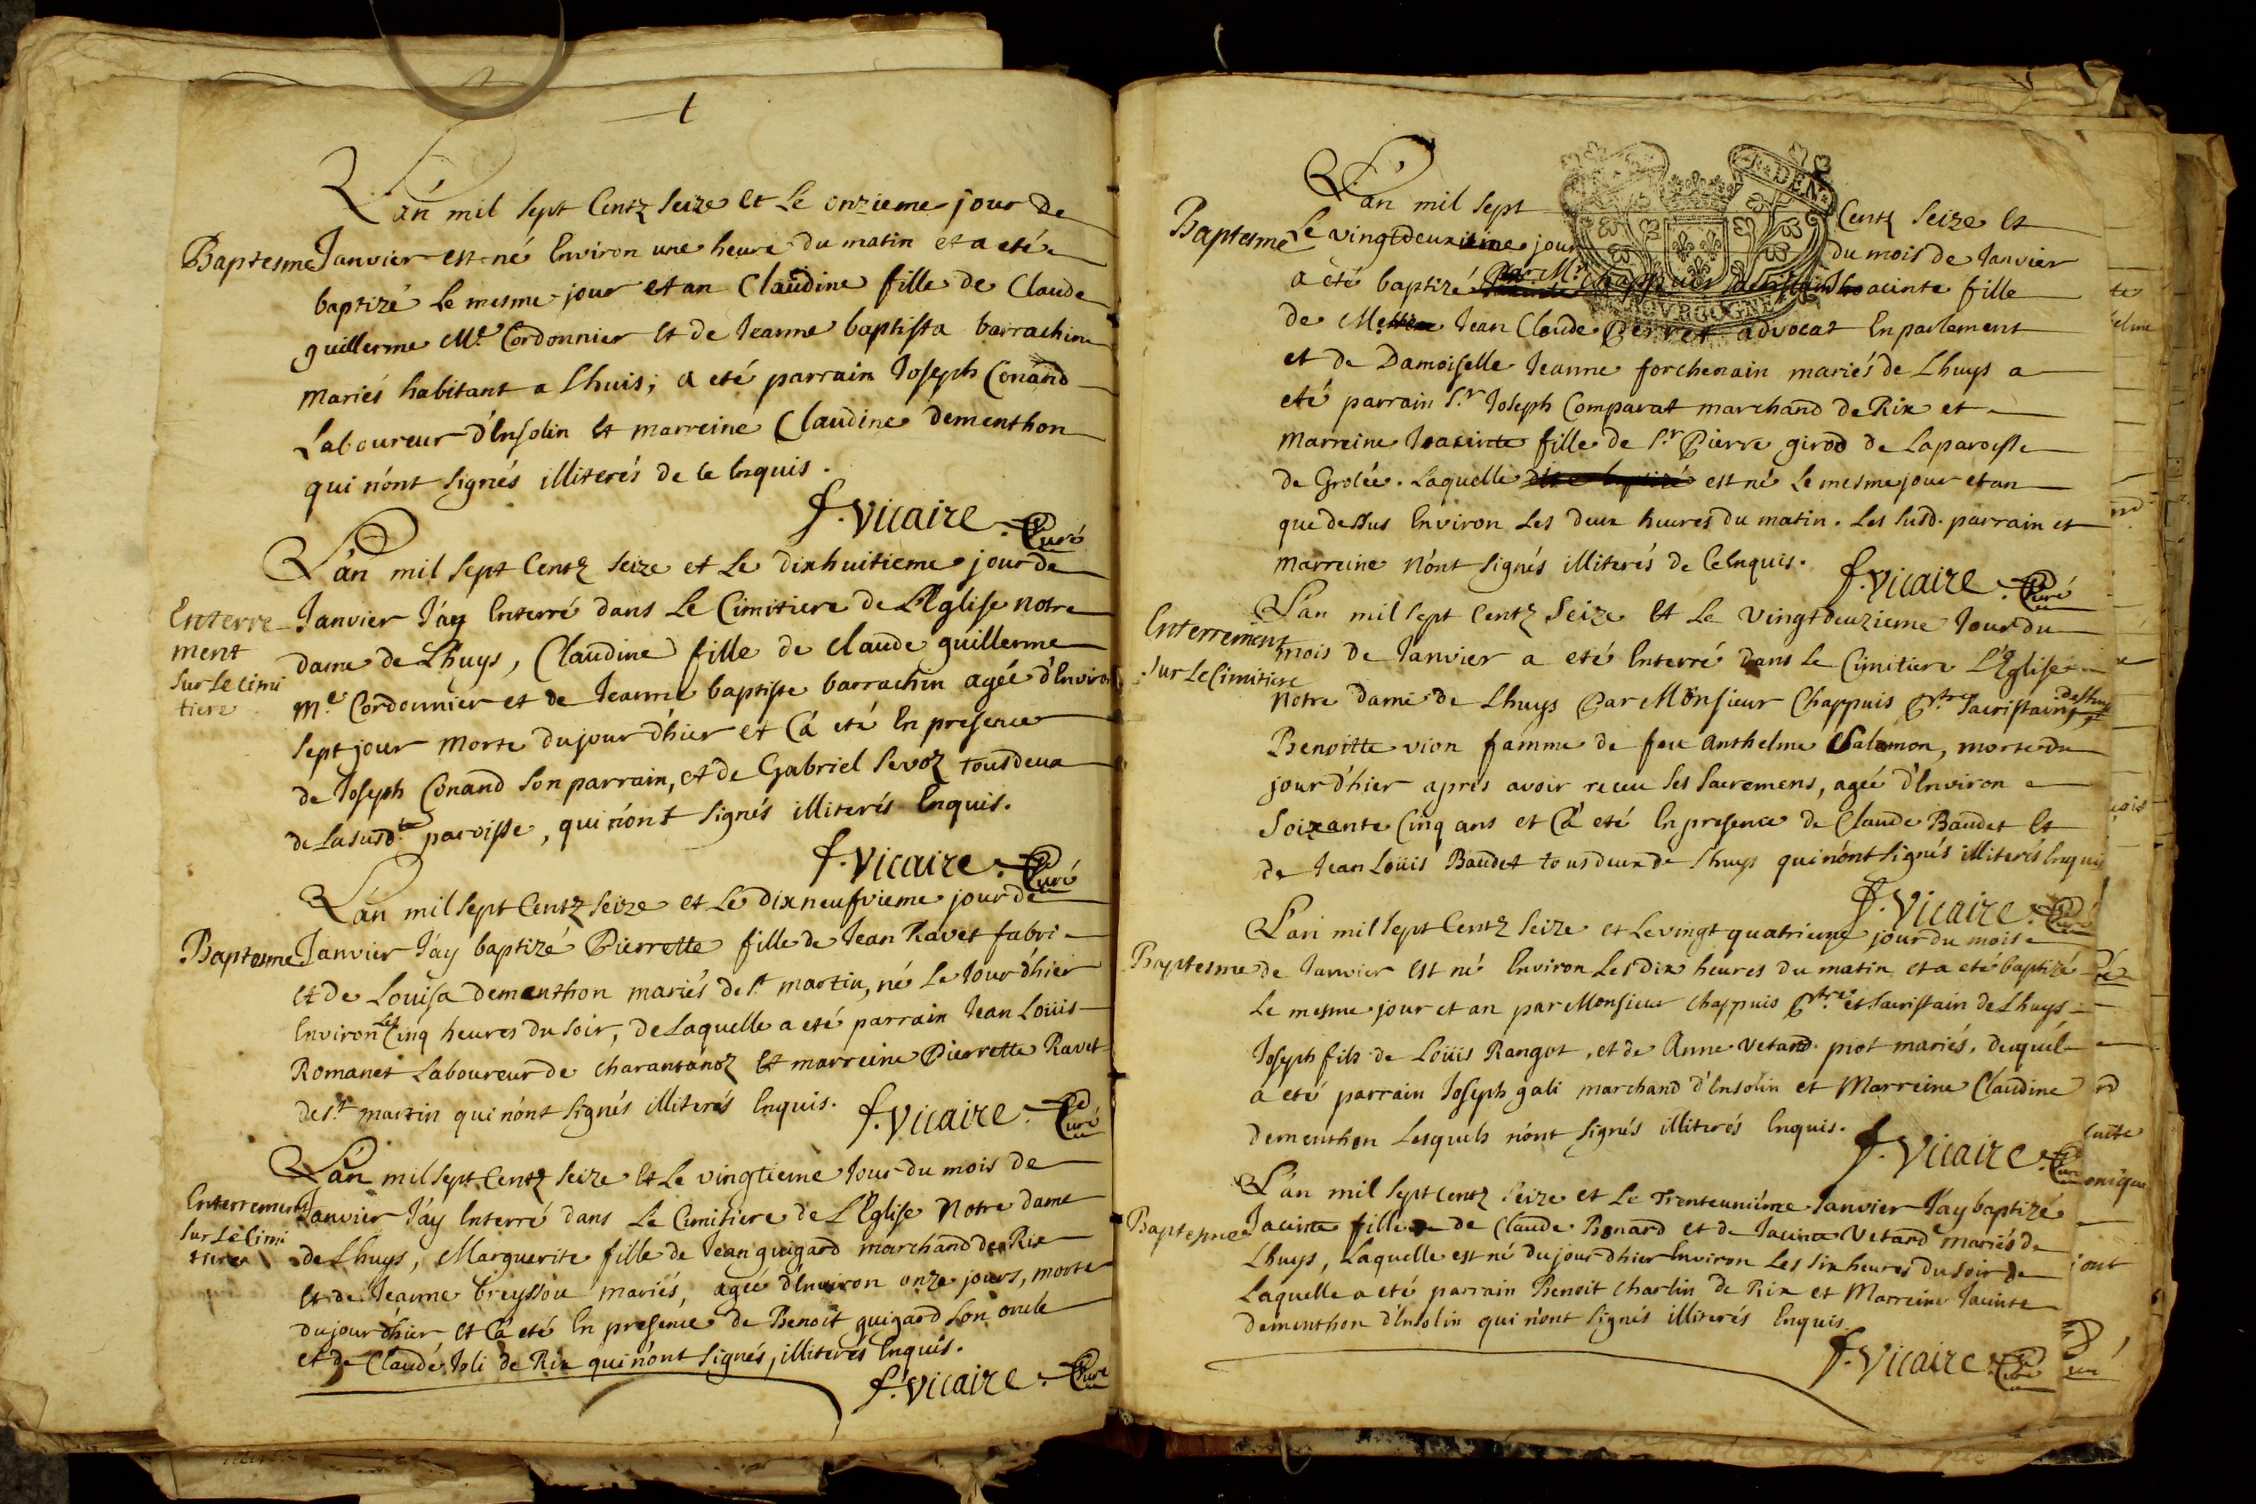 L'an mil sept Centz seize et le onzieme jour de
Baptesme
Janvier est né Environ une heure du matin et a eté
baptizé le mesme jour et an Claudine fille de Claude
guillerme Me Cordonnier et de Jeanne baptista barrachin
mariés habitant a Lhuis; a eté parrain Joseph Conand
Laboureur d'Ensolin et marreine Claudine dementhon
qui n'ont signés illiterés de ce Enquis.
f. Vicaire. Curé
L'an mil sept Centz seize et Le dixhuitieme jour de
Enterre
ment
sur Le Cimi
tiere
Janvier J'ay Enterré dans Le Cimitiere de L'Eglise notre
dame de Lhuys, Claudine fille de claude guillerme
Me Cordonnier et de Jeanne baptiste barrachin agée d'Environ
sept jour morte du jour d'hier et C'a eté En presence
de Joseph Conand son parrain, et de Gabriel Sevoz tous deux
de la susd.te paroisse, qui n'ont signés illiterés Enquis.
f. Vicaire. Curé
L'an mil sept Centz seize et Le dixneufvieme jour de
Baptesme
Janvier J'ay baptizé Pierrette fille de Jean Ravet fabri-
et de Louisa dementhon mariés de st martin, né Le Jour d'hier
Environ Les Cinq heures du soir, de Laquelle a eté parrain Jean Loüis
Romanet Laboureur de charantonoz et marreine Pierrette Ravet
de st martin qui n'ont signés illiterés Enquis.
f. Vicaire. Curé
L'an mil sept Centz seize et Le vingtieme Jour du mois de
Enterrement
sur Le Cimi
tiere
Janvier J'ay Enterré dans Le Cimitiere de L'Eglise Notre dame
de Lhuys, Marguerite fille de Jean guigard marchand de Rix
et de Jeanne breyssou mariés, agée d'Environ onze jours, morte
du jour d'hier et C'a eté En presence de Benoit guigard son oncle
et de Claude Joli de Rix qui n'ont signés, illiterés Enquis.
f. Vicaire. Curé
L'an mil sept Centz seize et
Baptesme
Le vingtdeuxieme jour du mois de Janvier
a eté baptizé par Mr Chappuis Joacinte fille
de Jean Claude Perret advocat En parlement
et de Damoiselle Jeanne forchenain mariés de Lhuys a
eté parrain Sr Joseph Comparat marchand de Rix et
Marreine Joacinte fille de Sr Pierre girod de La paroisse
de Grolée. Laquelle est né Le mesme jour et an
que dessus Environ Les deux heures du matin. Les susd. parrain et
marreine n'ont signés illiterés de Ce Enquis.
f. Vicaire. Curé
L'an mil sept Centz Seize et Le Vingtdeuzieme Jour du
Enterrement
sur Le Cimitiere
mois de Janvier a eté Enterré dans Le Cimitiere L'Eglise
Notre dame de Lhuys Par Monsieur Chappuis Ptre Sacristain
Benoitte vion famme de feu Anthelme Salomon, morte du
jour d'hier apres avoir receu ses sacremens, agée d'Environ
Soixante Cinq ans et C'a eté En presence de Claude Baudet et
de Jean Loüis Baudet tous deux de Lhuys qui n'ont signés illiterés Enquis
f. Vicaire. Curé
L'an mil sept Centz seize et Le vingt quatrieme jour du mois
Baptesme
de Janvier est né Environ Les dix heures du matin et a eté baptizé
Le mesme jour et an par Monsieur Chappuis Ptre et Sacristain de Lhuys
Joseph fils de Loüis Rangot, et de Anne Vetand piot mariés, duquel
a eté parrain Joseph gali marchand d'Ensolin et Marreine Claudine
dementhon Lesquels n'ont signés illiterés Enquis.
f. Vicaire. Curé
L'an mil sept Centz seize et Le Trenteunieme Janvier J'ay baptizé
Baptesme
Jacinte fille de Claude Bonard et de Jacinte Vetand mariés de
Lhuys, Laquelle est né du jour d'hier Environ Les six heures du soir de
Laquelle a eté parrain Benoit Charlin de Rix et Marreine Jacinte
dementhon d'Ensolin qui n'ont signés illiterés Enquis.
f. Vicaire. Curé